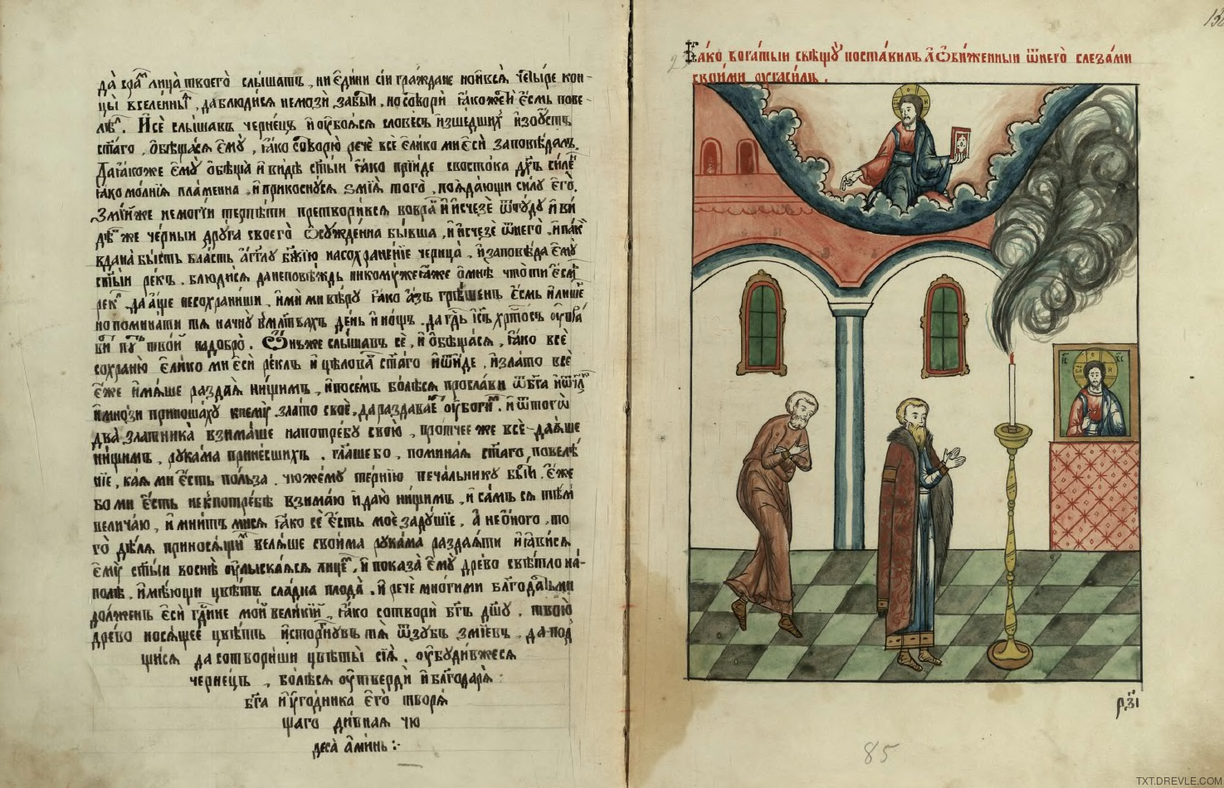 да вра҃ лица твоего слышатъ, ни едини сїи граждане но и вся четыре кон-
цы вселенныѧ, да блюдися не мози забыти, но сотвори ꙗкоже ти есмь пове-
лѣ. И се слышавъ чернецъ и оубояся словесъ изшедшихъ изо оустъ
стаго, обѣщася ему, ꙗко сотворю рече все елико ми еси заповѣдалъ.
Да ꙗкоже ему обѣща и видѣ стыи ꙗко прїиде с востока дхъ силенъ
ꙗко молнїя пламенна, и прикоснуся змїя того, поядающи силу его.
Змїй же не могїи терпѣти претворися во вранъ и исчезе
же черныи друга своего
вдана бысть власть агглу бжїю на сохраненїе черица, и заповѣда ему
стыи рекъ, блюдися да не повѣждь никомуже ꙗже о мнѣ что ти есмь
рекъ, да аще не сохраниши, ими ми вѣру ꙗко азъ грѣшенъ есмь и лише
но поминати тя начну в млтвахъ день и нощь, да гдь исъ хртосъ оуправи
ти путь твой на добро. Онъ же слышавъ се, и обѣщася, ꙗко все
сохраню елико ми еси реклъ и цѣлова стаго и ѿиде, и злато все
еже имяше раздая нищимъ, и посемъ болѣ ся прослави ѿ бга
и мнози приношаху к нему злато свое, да раздаваетъ оубогимъ, и ѿ того
два златника взимаше на потребу свою, а протчее же все даяше
нищимъ, рукама принесшихъ. глаше бо, поминая стаго повелѣ
нїе, кая ми есть польза, чюжему тернїю печальнику быти. еже
бо ми есть не к потребѣ взимаю и даю нищимъ, и самъ ся тѣмъ
величаю, и мнитъ ми ся ꙗко се есть мое задушїе, А не оного, то
го дѣля приносящимъ веляше своима рукама раздаяти и ꙗвися
ему стыи во снѣ оулыскаяся лицемъ, и показа ему древо свѣтло на
полѣ, имѣющи цвѣтъ сладка плода, и рече многими благодатьми
долженъ еси гдине мой великїй, ꙗко сотвори бгъ дшу твою
древо носящее цвѣтъ исторгнувъ тя ѿ зубъ змїевъ, да под
щися да сотвориши цвѣты сїя. оубудив же ся
чернецъ, болѣ ся оутверди и благодаря
бга и угодника его творя
щаго дивная чю
деса аминь :·
ꙗко богатыи свѣщу поставилъ а ѡбиженныи ѿ него слезами
своими оугасилъ.
рзі
85
TXT.DREVLE.COM